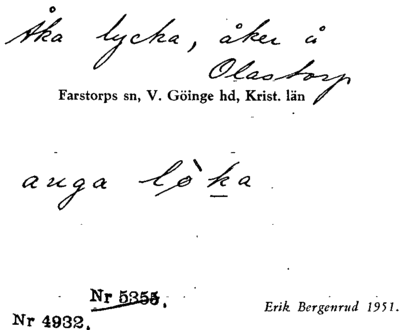 Åka lycka, åker å
Olastorp
Farstorps sn, V. Göinge hd, Krist. län
auga lò̀ka
Nr 5355.
Nr 4932.
Erik Bergenrud 1951.